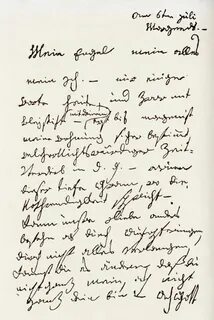 am 6ten Juli
Morgends. —
Mein Engel mein alles
mein Ich. — nur einige
Worte heute, und zwar mit
Bleystift (mit deinem) — erst bis morgen ist
meine Wohnung sicher bestimmt,
welcher Nichtswürdiger Zeit-
verderb in d. g. — warum
dieser tiefe Gram, wo die
Nothwendigkeit spricht —
Kann unsre Liebe anders
bestehn als durch Aufopferungen,
durch nicht alles verlangen,
kannst du es ändern, daß du
nicht ganz mein, ich nicht
ganz dein bin — Ach Gott